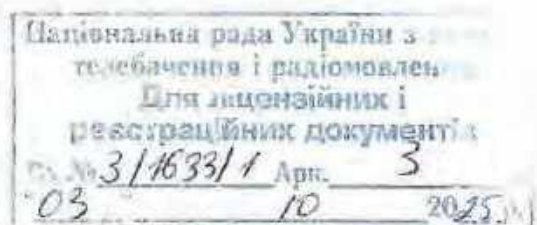 Національна рада України з
телебачення і радіомовлен
Для ліцензійних і
реєстраційних документів
Вх. № 3/1633/1 Арк. 3
"03" 10 2025 р.